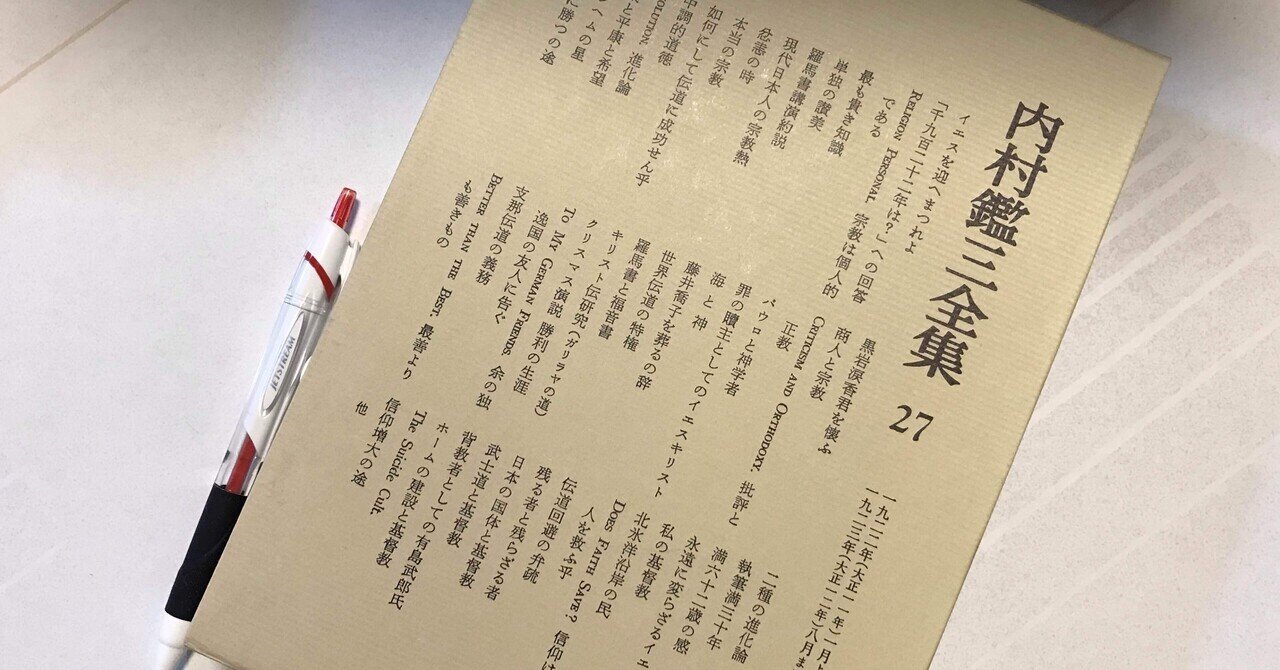 内村鑑三全集 27
一九二二年(大正一一年)一月よ
一九二三年(大正一二年)八月ま
イエスを迎へまつれよ
「千九百二十二年は?」への回答
RELIGION PERSONAL. 宗教は個人的
である
最も貴き知識
単独の讃美
羅馬書講演約説
現代日本人の宗教熱
忿恚の時
本当の宗教
如何にして伝道に成功せん乎
中調的道徳
OLUTION. 進化論
と平康と希望
ヘムの星
に勝つの途
黒岩涙香君を懐ふ
商人と宗教
CRITICISM AND ORTHODOXY. 批評と
正教
パウロと神学者
罪の贖主としてのイエスキリスト
海と神
藤井喬子を葬るの辞
世界伝道の特権
羅馬書と福音書
キリスト伝研究(ガリラヤの道)
クリスマス演説 勝利の生涯
TO MY GERMAN FRIENDS. 余の独
逸国の友人に告ぐ
支那伝道の義務
BETTER THAN THE BEST. 最善より
も善きもの
二種の進化論
執筆満三十年
満六十二歳の感
永遠に変らざるイエ
私の基督教
北氷洋沿岸の民
DOES FAITH SAVE? 信仰は
人を救ふ乎
伝道回避の弁疏
残る者と残らざる者
日本の国体と基督教
武士道と基督教
背教者としての有島武郎氏
ホームの建設と基督教
The Suicide Cult.
信仰増大の途
他
JETSTREAM